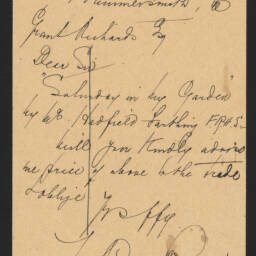 Hammersmith, W
Grant Richards Esq
Dear Sir
"Saturday in my Garden"
by Mr Hadfield Farthing F.R.H.S.
will you kindly advise
me price of above & the trade
& oblige
Yrs ffy